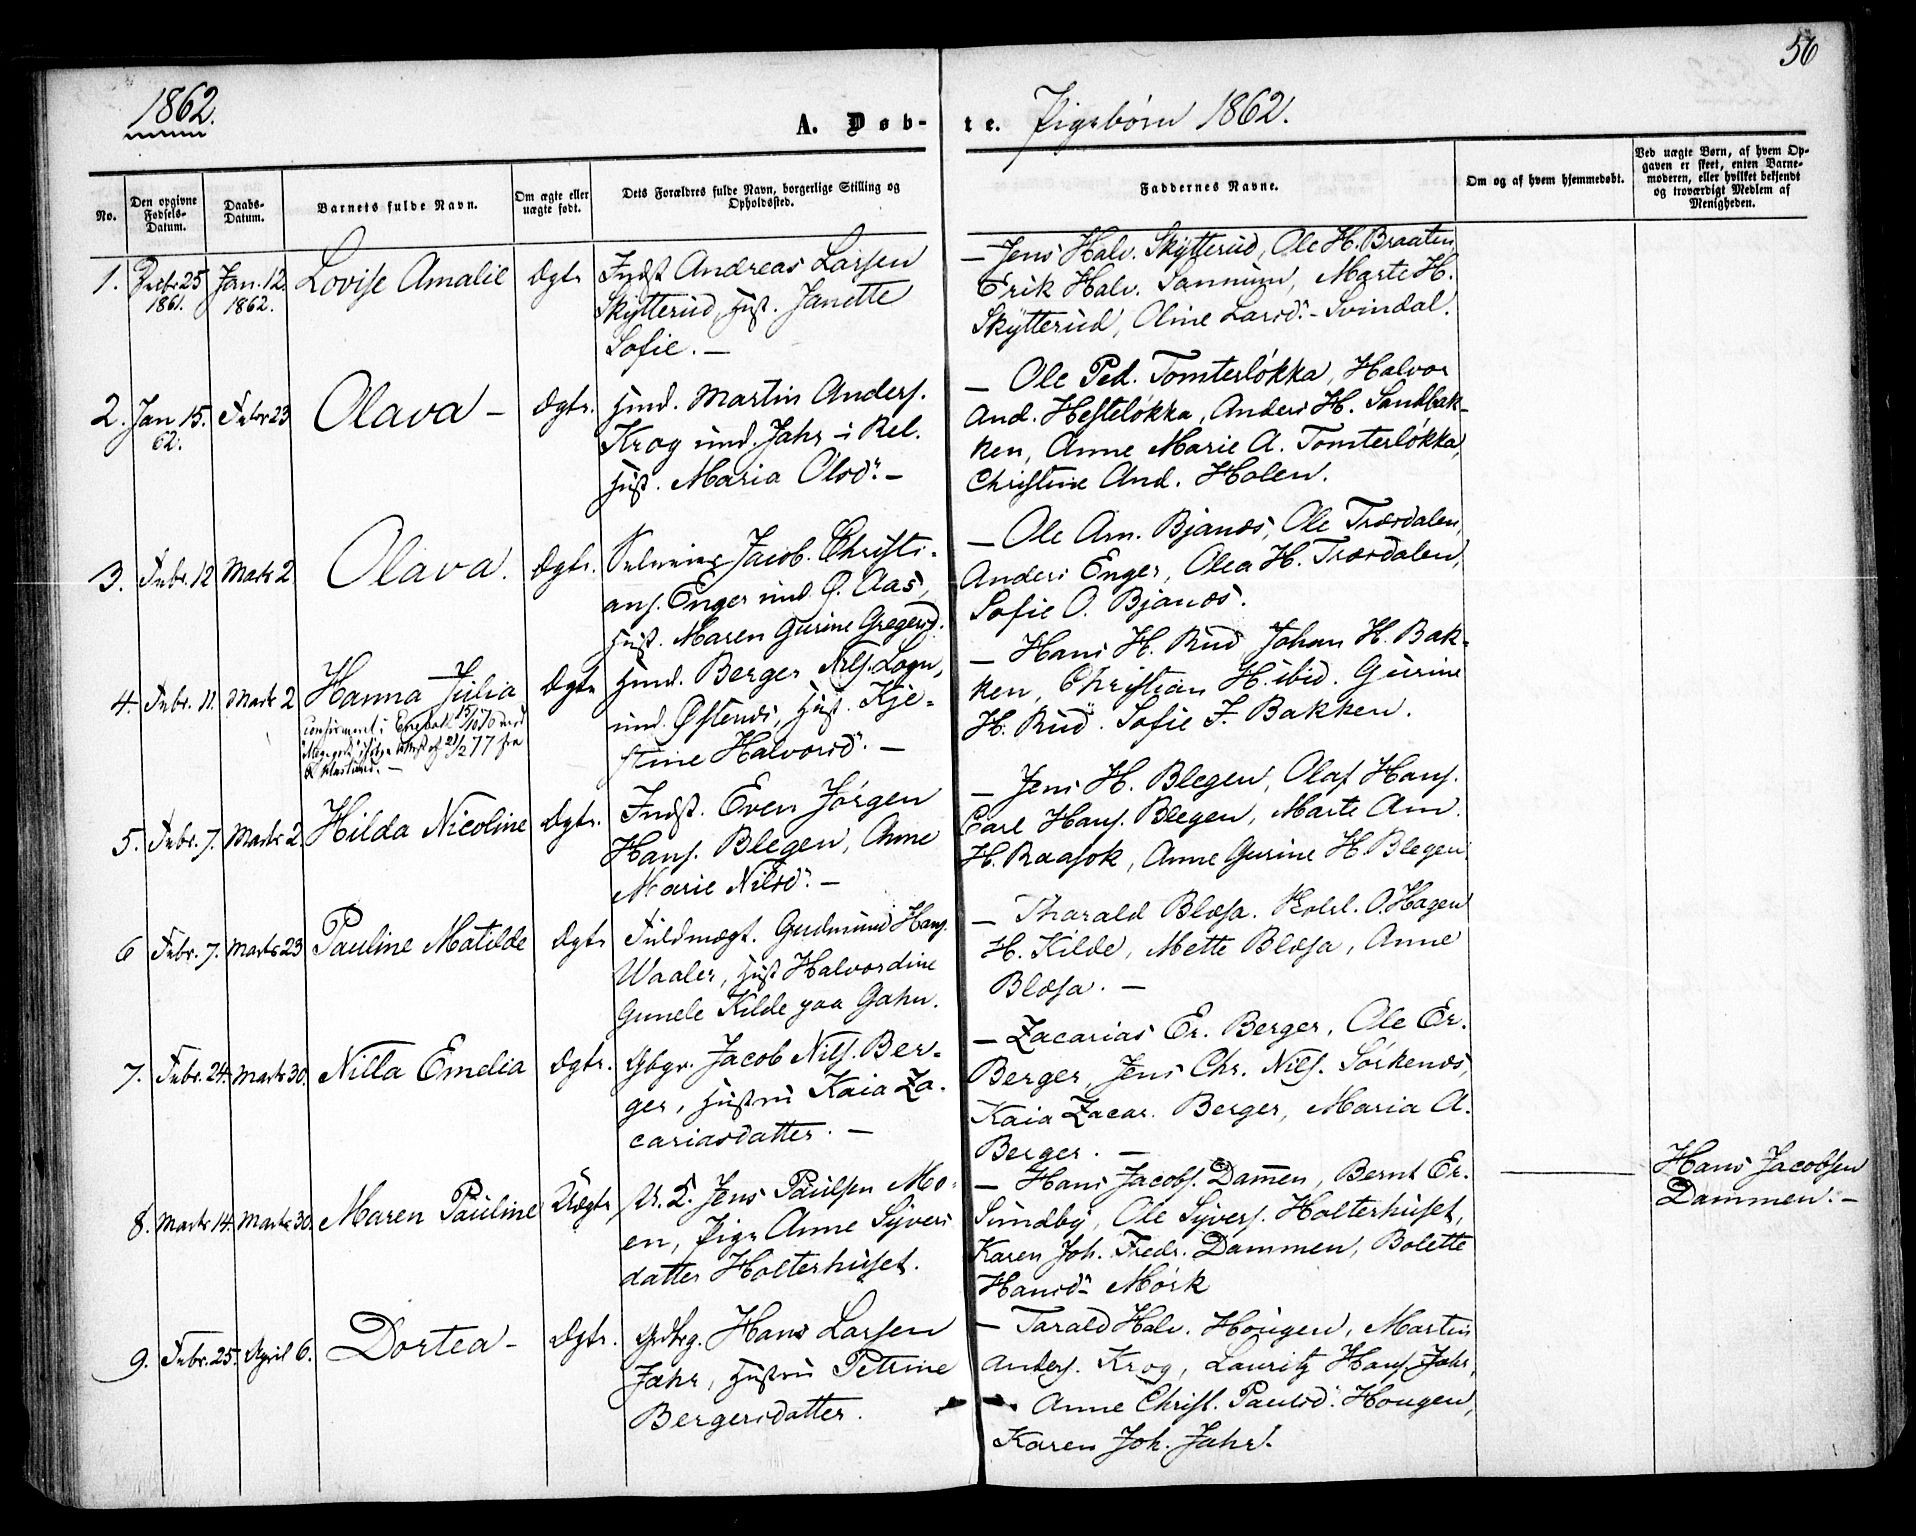 56
1862.
A. Døb-
te.
Pigebørn 1862.
No.
Den opgivne Fødsels-Datum.
Daabs-Datum.
Barnets fulde Navn.
Om ægte eller uægte født.
Dets Forældres fulde Navn, borgerlige Stilling og Opholdssted.
Faddernes Navne.
Om og af hvem hjemmedøbt.
Ved uægte Børn, af hvem Opgaven er skeet, enten Barnemoderen, eller hvilket bekjendt og troværdigt Medlem af Menigheden.
1.
Debr 25
1861.
Jan. 12.
1862.
Lovise Amalie
Ægte
Indst Andreas Larsen
Skytterud, Hust. Janette
Sofie. —
— Jens Halv. Skytterud, Ole H. Braaten,
Erik Halv. Sannum, Marte H.
Skytterud, Oline Larsd. - Svindal.
2.
Jan 15.
62.
Febr 23
Olava —
Ægte.
Husmd. Martin Anders.
Krog und. Jahr i Rel.
Hust. Maria Olsd. —
— Ole Ped. Tomterløkka, Halvor
And. Hesteløkka, Anders H. Sandbak-
ken, Anne Marie A. Tomterløkka,
Christine And. Holen.
3.
Febr. 12
Marts 2
Olava.
Ægte.
Jacob. Christi-
ans. Enger und. Ø. Aas,
Hust. Maren Gurine Gregersd.
— Ole Am. Bjanæs, Ole Trærdalen,
Anders Enger, Olea H. Trærdalen,
Sofie O. Bjanæs.
4.
Febr. 11.
Marts 2
Hanna Julia
Confirmeret i
Ægte
Husmd. Berger Nils. Logn,
und. Østenes, Hust. Kje-
stine Halvorsd. —
— Hans H. Rud Johan H. Bak-
ken, Christian H. ibid. Gurine
H. Rud. Sofie J. Bakken.
5.
Febr. 7.
Marts 2.
Hilda Nicoline
Ægte.
Indst. Even Jørgen
Hans. Blegen, Anne
Marie Nilsd. —
— Jens H. Blegen, Olaf Hans.
Carl Hans. Blegen, Marte Am.
H. Raasok, Anne Gurine H. Blegen
6
Febr. 7.
Marts 23
Pauline Matilde
Ægte
Fuldmægt. Gudmund Hans.
Waaler, Hust Halvordine
Gunele Kilde paa Gahn.
— Tharald Blæsa. O. Hagen
H. Kilde, Mette Blæsa, Anne
Blæsa. —
7.
Febr. 24.
Marts 30.
Nilla Emelia
Ægte.
Gbgr. Jacob Nils. Ber-
ger, Hustru Kaia Za-
cariasdatter. —
— Zacarias Er. Berger, Ole Er.
Berger, Jens Chr. Nils. Sørkenæs,
Kaia Zacar. Berger, Maria A.
Berger. —
8.
Marts 14.
Marts 30.
Maren Pauline
Uægte
Jens Paulsen Mo-
en, Pige Anne Syvers
datter Holterhuset.
— Hans Jacobs. Dam̅en, Bernt Er.
Sundby, Ole Syvers. Holterhuset,
Karen Joh. Fredr. Dammen, Bolette
Hansd. Mørk
Hans Jacobsen
Dammen. —
9.
Febr. 25.
April 6.
Dortea —
Ægte.
Gdbrg. Hans Larsen
Jahr, Hustru Petrine
Bergersdatter.
— Tarald Halv. Hougen, Martin
Anders. Krog, Lauritz Hans. Jahr,
Anne Christ. Paulsd. Hougen,
Karen Joh. Jahr.